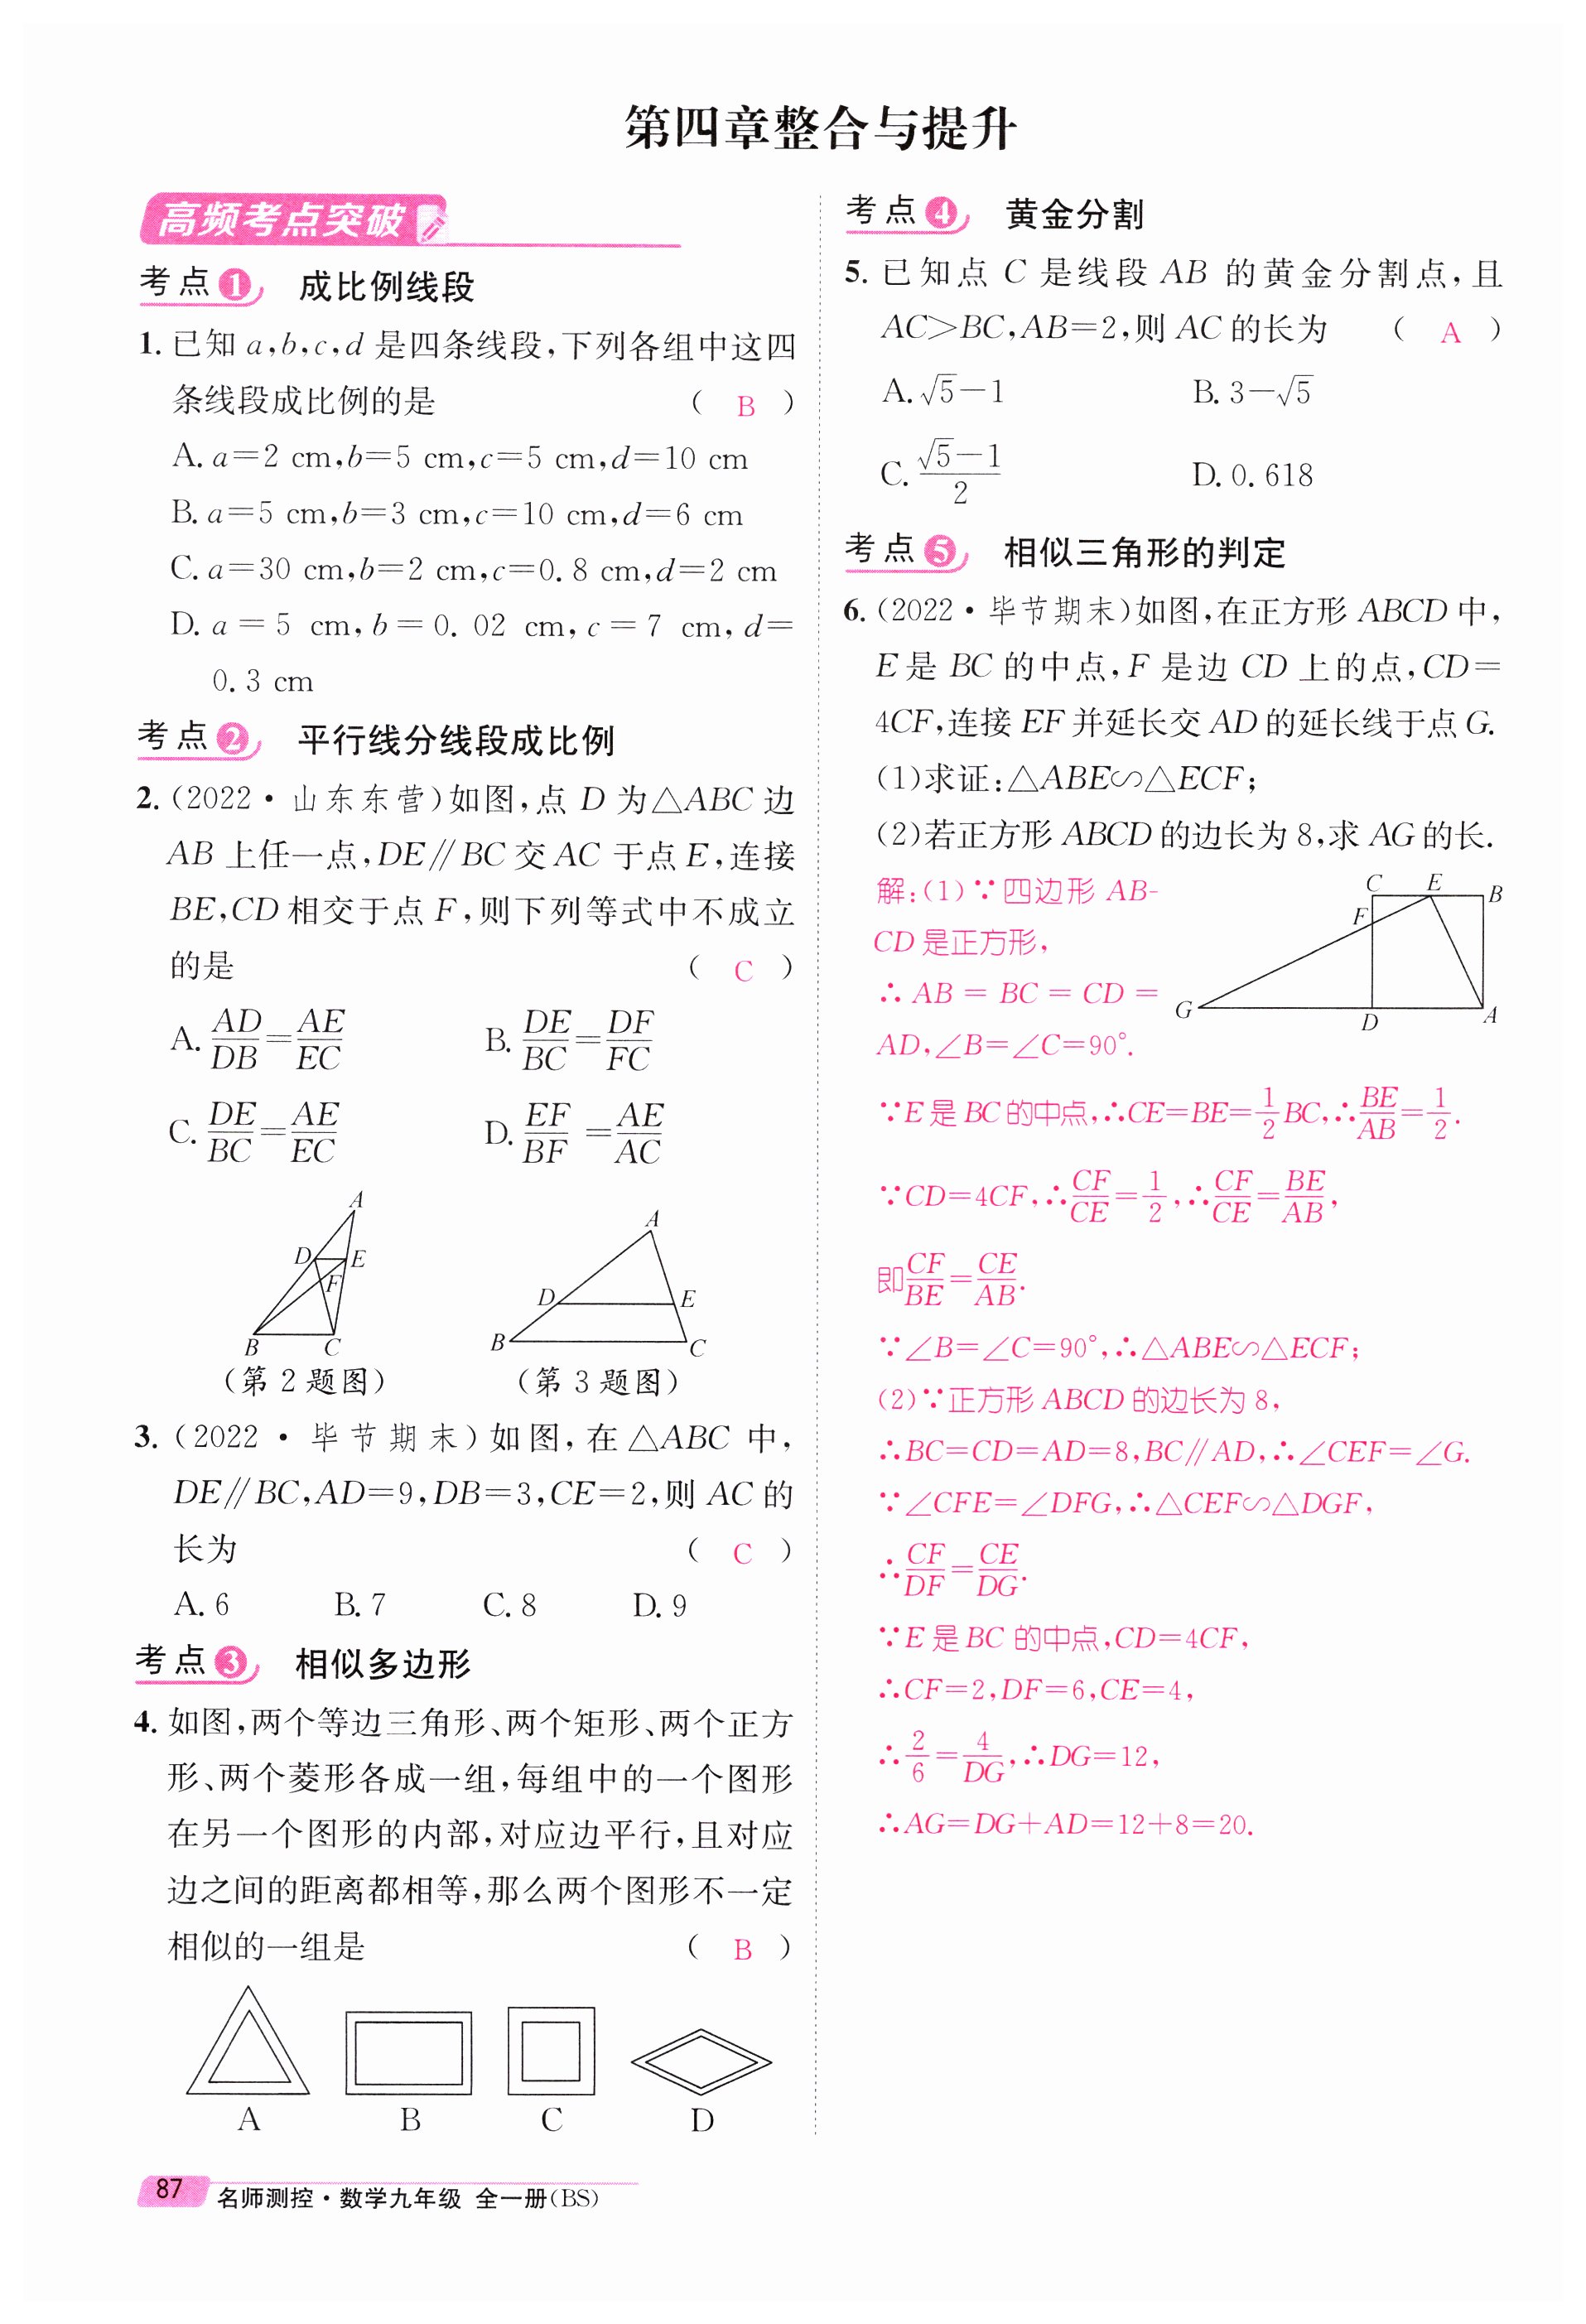 第四章整合与提升
高频考点突破
考点1 成比例线段
1. 已知 a,b,c,d 是四条线段,下列各组中这四
条线段成比例的是 ( B )
A. a=2 cm,b=5 cm,c=5 cm,d=10 cm
B. a=5 cm,b=3 cm,c=10 cm,d=6 cm
C. a=30 cm,b=2 cm,c=0.8 cm,d=2 cm
D. a=5 cm,b=0.02 cm,c=7 cm,d=
0.3 cm
考点2 平行线分线段成比例
2. (2022·山东东营)如图,点 D 为△ABC 边
AB 上任一点,DE∥BC 交 AC 于点 E,连接
BE,CD 相交于点 F,则下列等式中不成立
的是 ( C )
A. AD/DB=AE/EC B. DE/BC=DF/FC
C. DE/BC=AE/EC D. EF/BF=AE/AC
A
D E
F
B C
(第 2 题图)
A
D E
B C
(第 3 题图)
3. (2022·毕节期末)如图,在△ABC 中,
DE∥BC,AD=9,DB=3,CE=2,则 AC 的
长为 ( C )
A. 6 B. 7 C. 8 D. 9
考点3 相似多边形
4. 如图,两个等边三角形、两个矩形、两个正方
形、两个菱形各成一组,每组中的一个图形
在另一个图形的内部,对应边平行,且对应
边之间的距离都相等,那么两个图形不一定
相似的一组是 ( B )
A B C D
考点4 黄金分割
5. 已知点 C 是线段 AB 的黄金分割点,且
AC>BC,AB=2,则 AC 的长为 ( A )
A. √5−1 B. 3−√5
C. (√5−1)/2 D. 0.618
考点5 相似三角形的判定
6. (2022·毕节期末)如图,在正方形 ABCD 中,
E 是 BC 的中点,F 是边 CD 上的点,CD=
4CF,连接 EF 并延长交 AD 的延长线于点 G.
(1)求证:△ABE∽△ECF;
(2)若正方形 ABCD 的边长为 8,求 AG 的长.
C E B
F
G D A
解:(1)∵四边形 AB-
CD 是正方形,
∴AB=BC=CD=
AD,∠B=∠C=90°.
∵E 是 BC 的中点,∴CE=BE=1/2 BC,∴BE/AB=1/2.
∵CD=4CF,∴CF/CE=1/2,∴CF/CE=BE/AB,
即CF/BE=CE/AB.
∵∠B=∠C=90°,∴△ABE∽△ECF;
(2)∵正方形 ABCD 的边长为 8,
∴BC=CD=AD=8,BC∥AD,∴∠CEF=∠G.
∵∠CFE=∠DFG,∴△CEF∽△DGF,
∴CF/DF=CE/DG.
∵E 是 BC 的中点,CD=4CF,
∴CF=2,DF=6,CE=4,
∴2/6=4/DG,∴DG=12,
∴AG=DG+AD=12+8=20.
87 名师测控·数学九年级 全一册(BS)